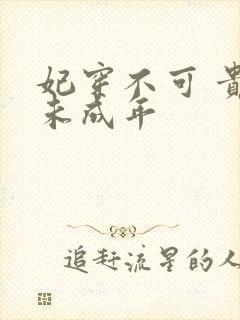 妃穿不可 貴
未成年
追赶流星的人